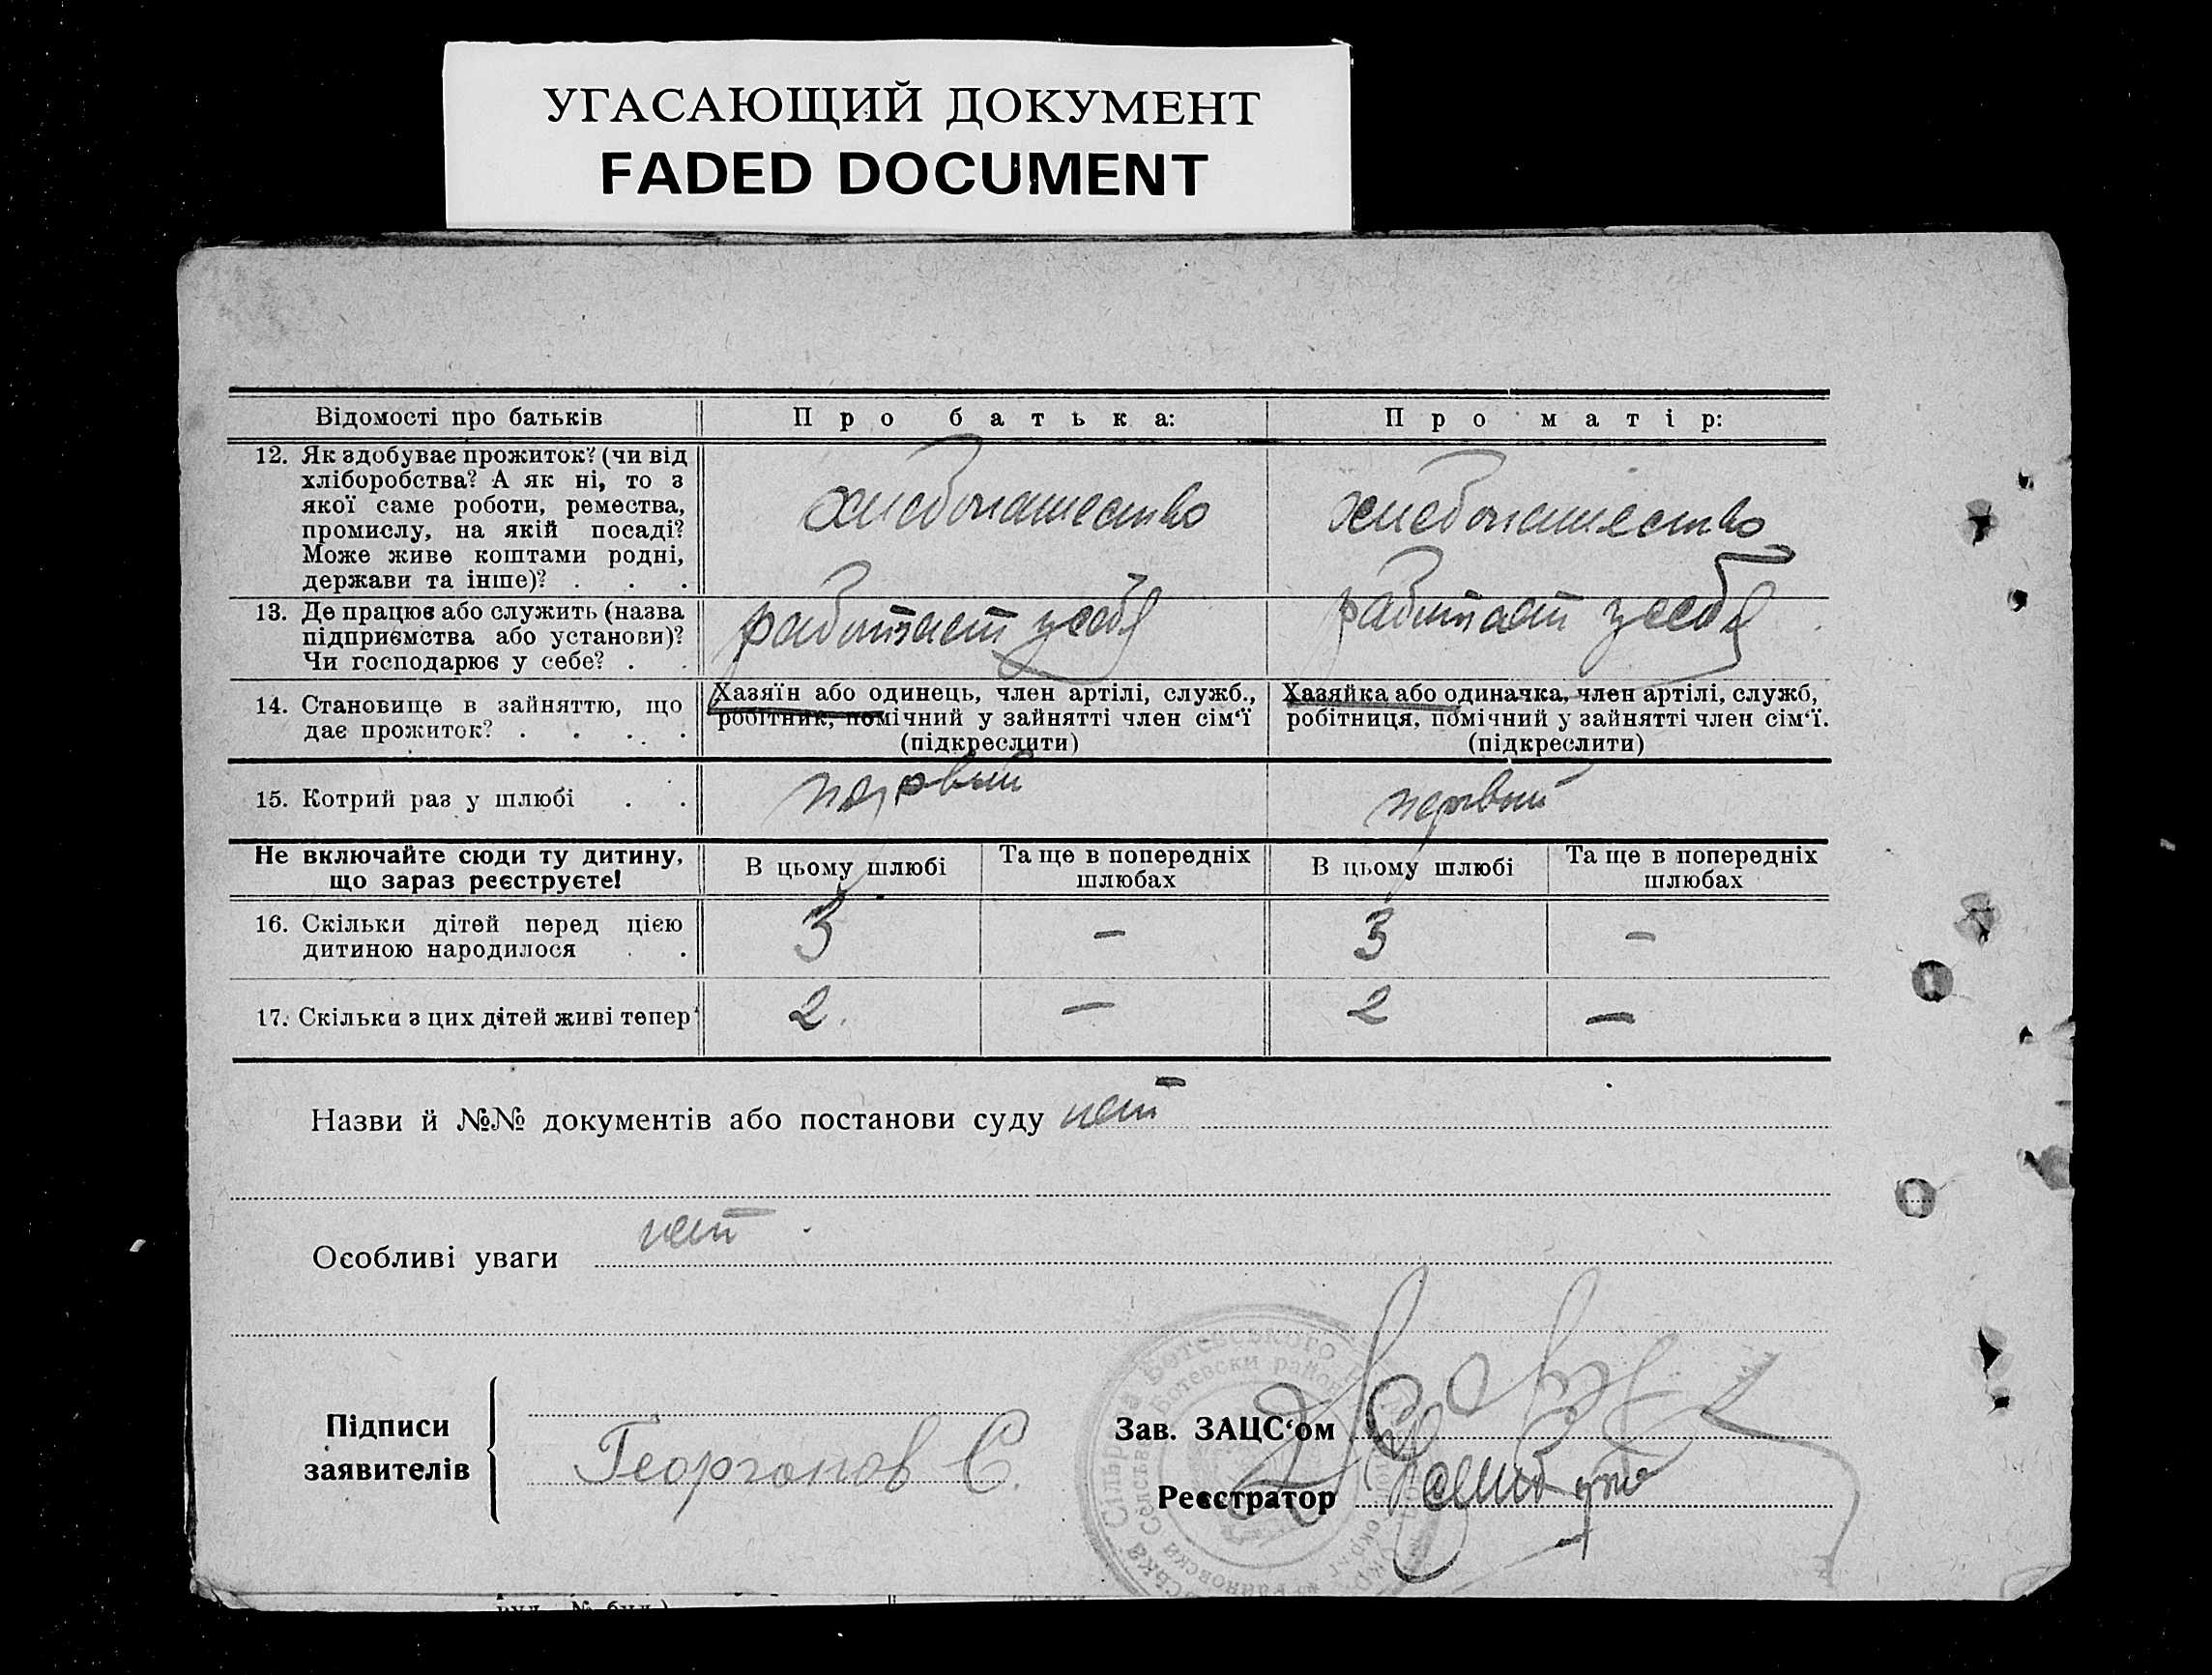 УГАСАЮЩИЙ ДОКУМЕНТ
FADED DOCUMENT
Відомості про батьків
Про батька:
Про матір:
12. Як здобуває прожиток? (чи від
хліборобства? А як ні, то з
якої саме роботи, ремества,
промислу, на якій посаді?
Може живе коштами родні,
держави та інше)? . . .
хлебопашество
хлебопашество
13. Де працює або служить (назва
підприємства або установи)?
Чи господарює у себе? . .
работает у себя
работает у себя
14. Становище в зайняттю, що
дає прожиток? . . . .
Хазяїн або одинець, член артілі, служб.,
робітник, помічний у зайнятті член сім'ї
(підкреслити)
Хазяйка або одиначка, член артілі, служб,
робітниця, помічний у зайнятті член сім'ї.
(підкреслити)
15. Котрий раз у шлюбі . .
первый
первый
Не включайте сюди ту дитину,
що зараз реєструєте!
В цьому шлюбі
Та ще в попередніх
шлюбах
В цьому шлюбі
Та ще в попередніх
шлюбах
16. Скільки дітей перед цією
дитиною народилося . .
3
—
3
—
17. Скільки з цих дітей живі тепер
2.
—
2
—
Назви й №№ документів або постанови суду нет
Особливі уваги нет
Підписи
заявителів
Георгонов С.
Зав. ЗАЦС'ом
Реєстратор
Сільрада Ботевського
Ботевски район
вул. № буд.)